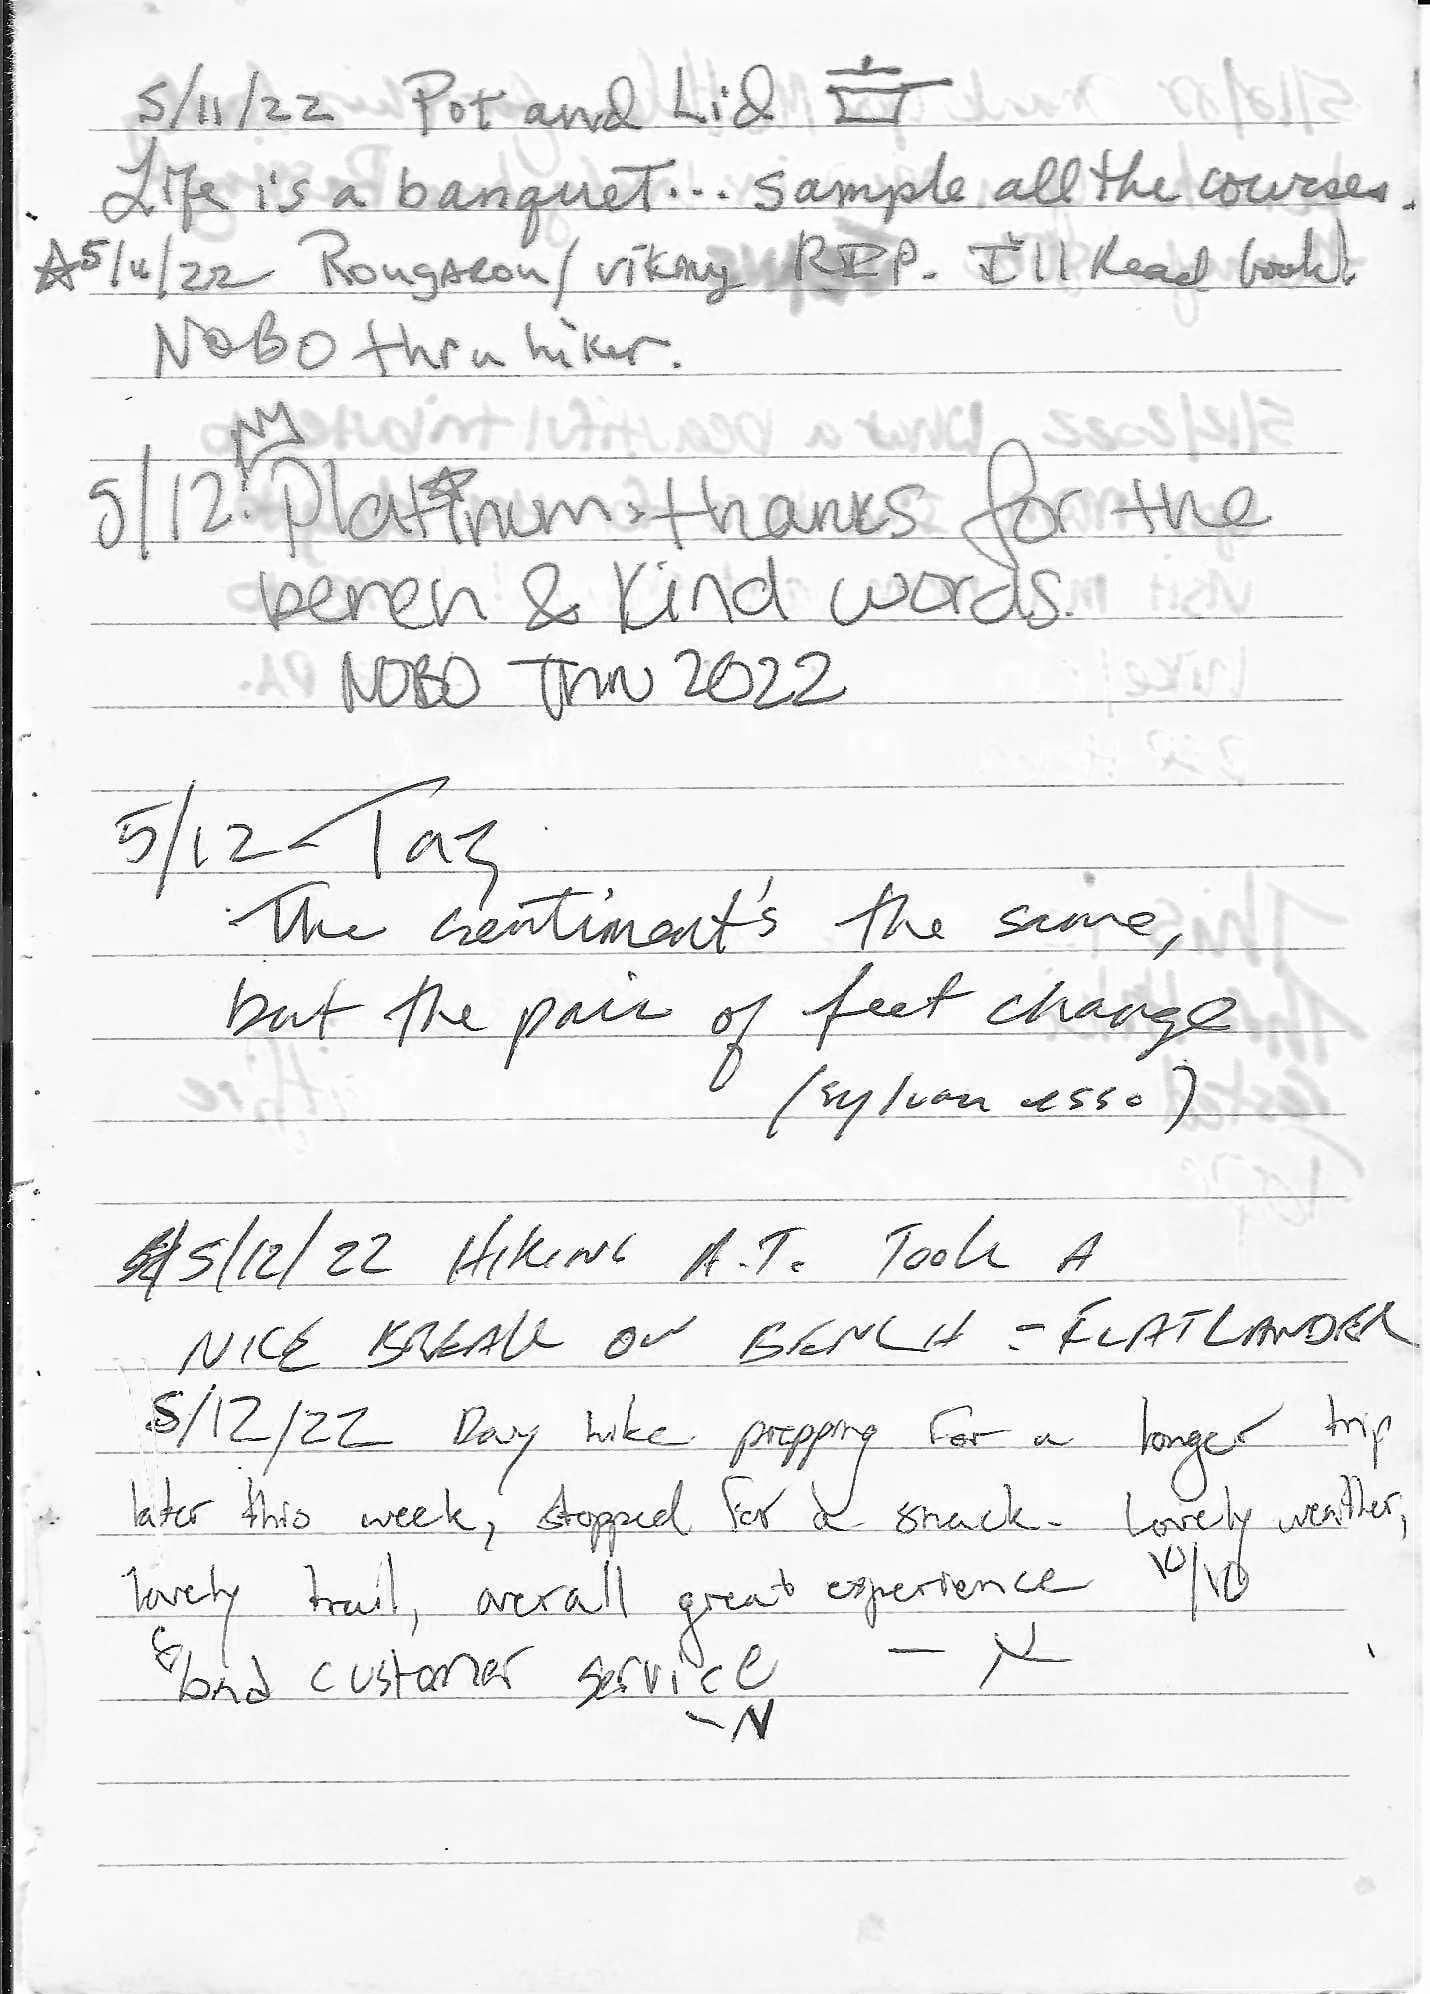 5/11/22 Pot and Lid
Life is a banquet... sample all the courses.
5/11/22 Rougarou/viking RIP. I'll Read book.
NOBO thru hiker.
5/12: Platinum: thanks for the
& kind words.
NOBO Thru 2022
5/12 - Taz
The sentiment's the same,
but the pair of feet change
(sylvan esso)
5/12/22 HIKING A.T. TOOK A
NICE BREAK ON BENCH = FLATLANDER
5/12/22 Day hike prepping for a longer trip
later this week, stopped for a snack. Lovely weather,
lovely trail, overall great experience 10/10
bad customer service - N
-N